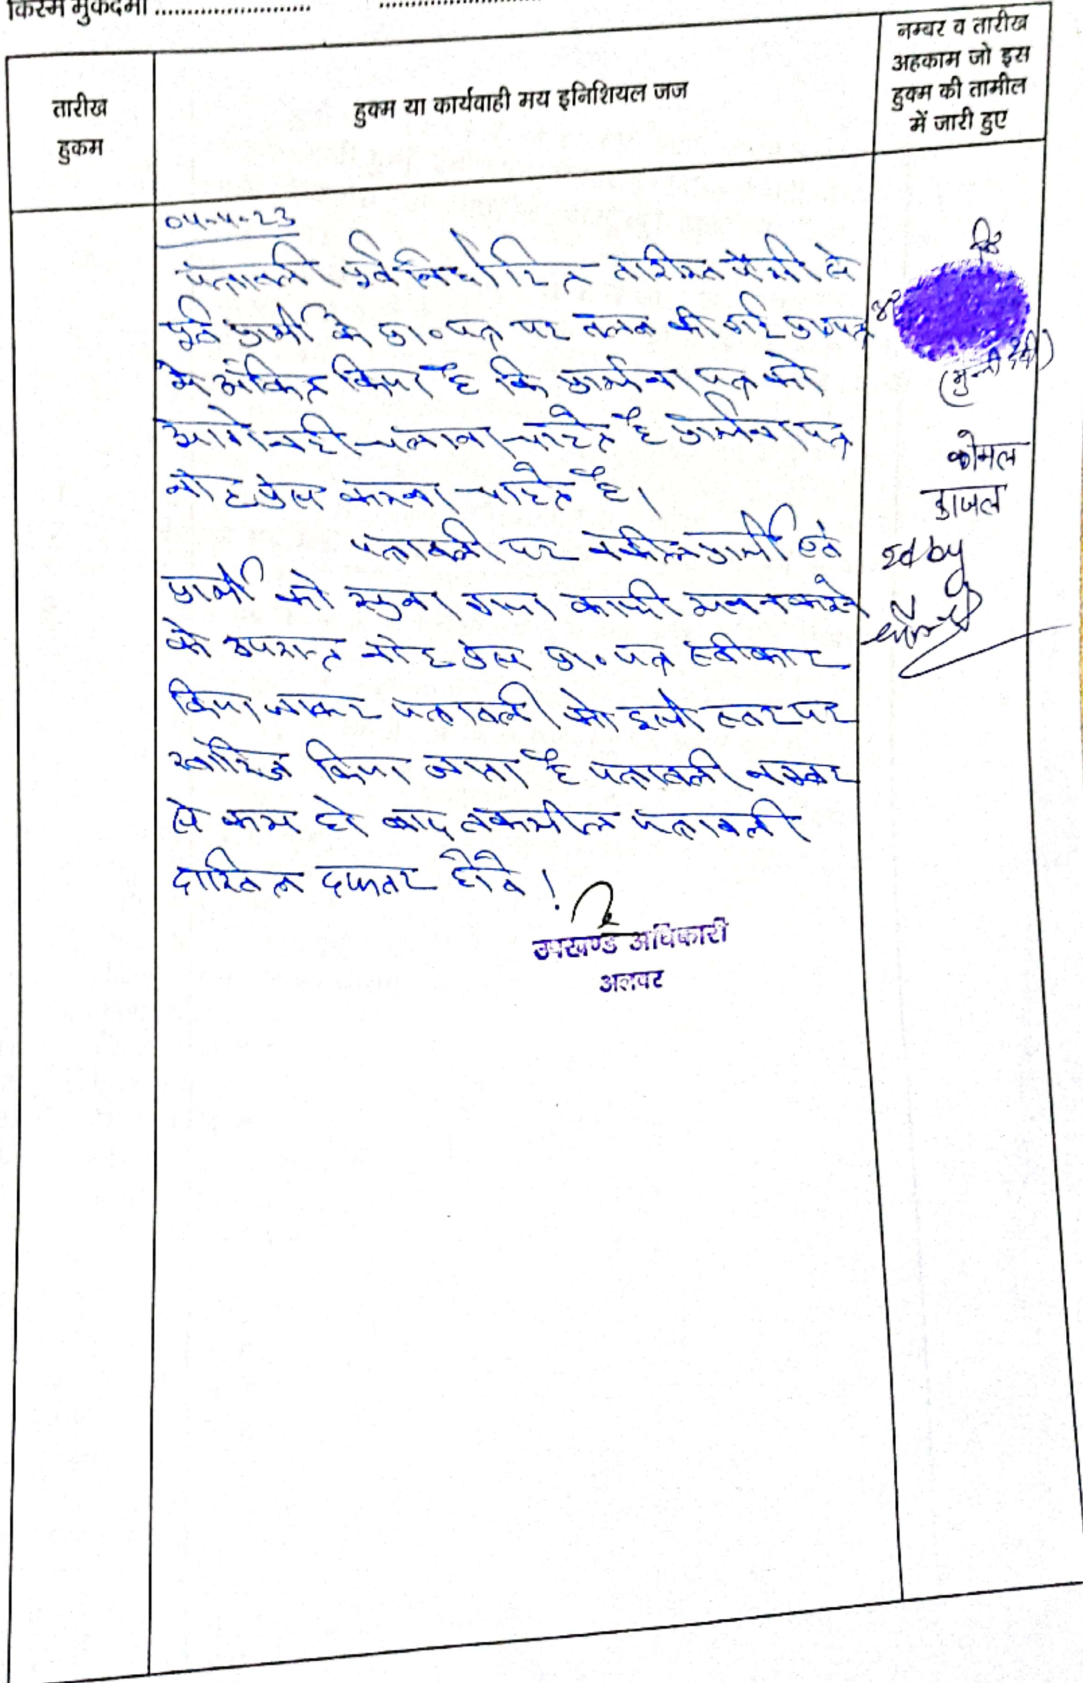 किस्म मुकदमा ........................ ........................
तारीख
हुकम
हुक्म या कार्यवाही मय इनिशियल जज
नम्बर व तारीख
अहकाम जो इस
हुक्म की तामील
में जारी हुए
04-4-23
पत्रावली पूर्व निर्धारित तारीख पेशी से
पूर्व प्रार्थी के प्रा०पत्र पर तलब की गई प्रा०पत्र
मे अंकित किया है कि प्रार्थना पत्र को
आगे नही चलाना चाहते है प्रार्थना पत्र
नोट प्रेस करना चाहते है।
पत्रावली पर वकील प्रार्थी एवं
प्रार्थी को सुना गया काफी मनन करने
के उपरान्त नोट प्रेस प्रा०पत्र स्वीकार
किया जाकर पत्रावली को इसी स्तर पर
खारिज किया जाता है पत्रावली नम्बर
से कम हो बाद तकमील पत्रावली
दाखिल दफ्तर होवे !
उपखण्ड अधिकारी
अलवर
नि०
(मुन्नी देवी)
कोमल
काजल
Id by